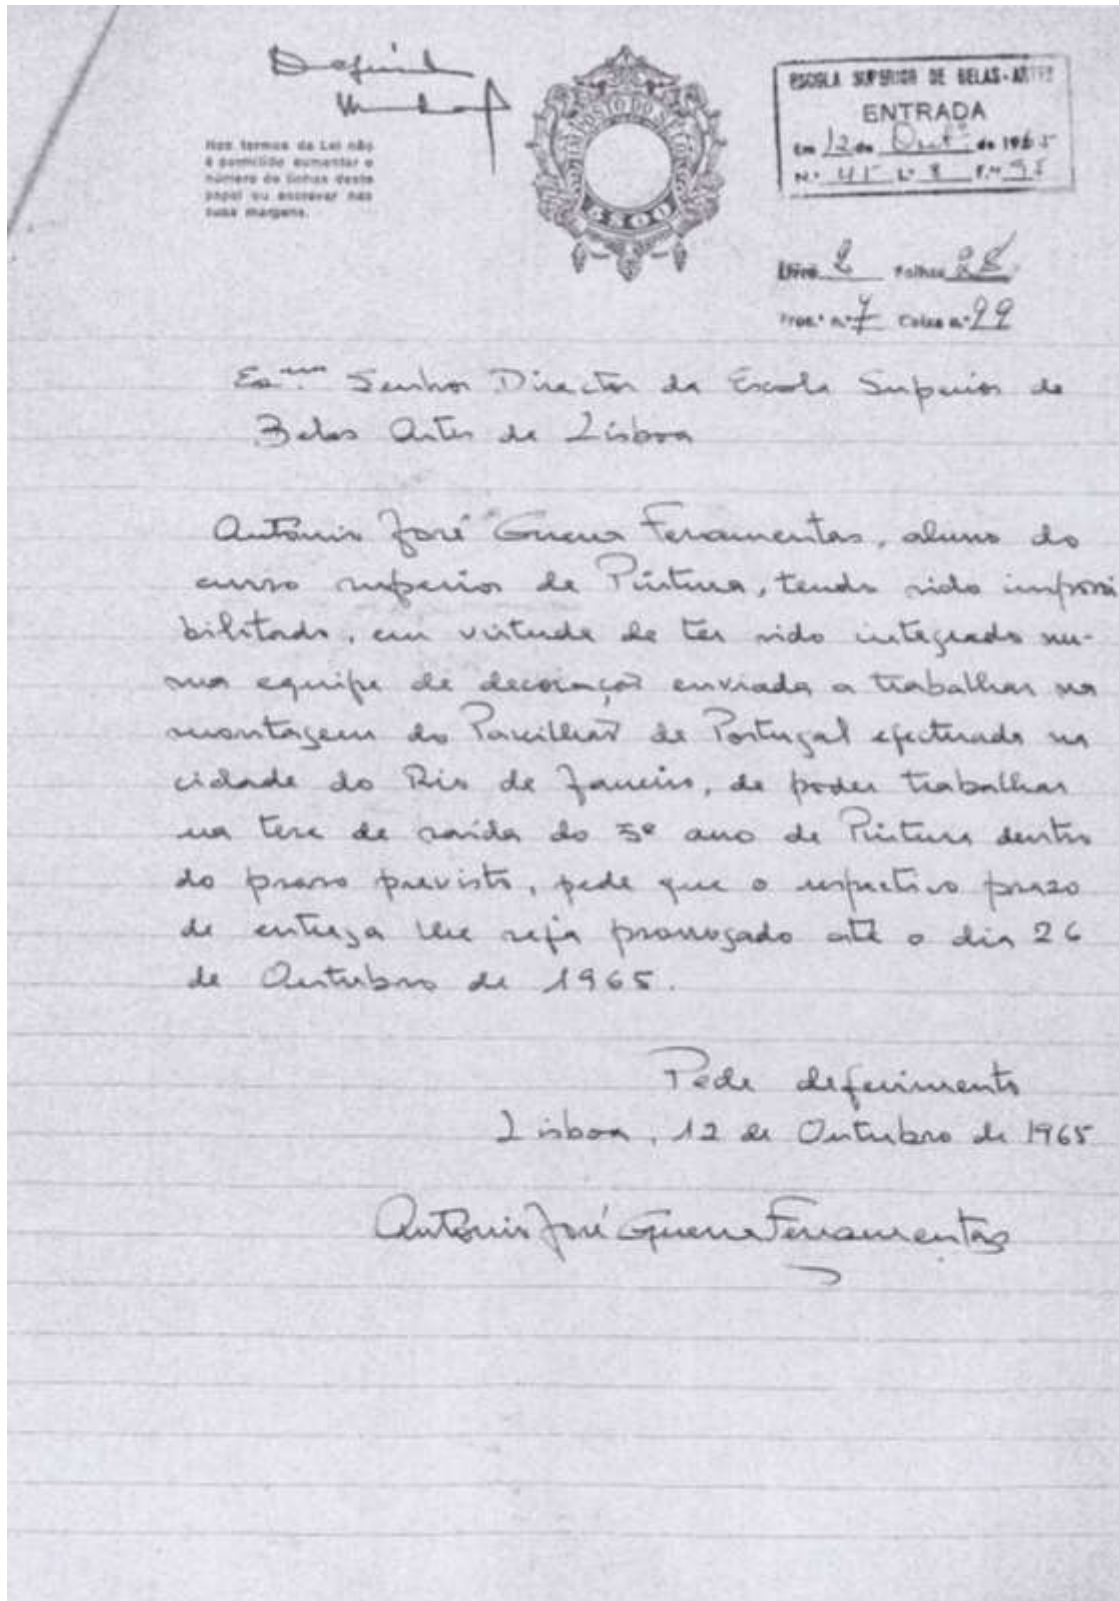 Deferido
Nos termos da Lei não
é permitido aumentar o
número de linhas deste
papel ou escrever nas
suas margens.
IMPOSTO DO SELO
5$00
ESCOLA SUPERIOR DE BELAS-ARTES
ENTRADA
Em 12 de Outº de 1965
N.º 45 L.º 8 F.º 95
Livro 2 Folhas 28
Proc.º n.º 7 Caixa n.º 99
Exmo Senhor Director da Escola Superior de
Belas Artes de Lisboa
António José Guerra Ferramentas, aluno do
curso superior de Pintura, tendo sido impossi
bilitado, em virtude de ter sido integrado nu-
ma equipe de decoração enviada a trabalhar na
montagem do Pavilhão de Portugal efectuada na
cidade do Rio de Janeiro, de poder trabalhar
na tese de saída do 5º ano de Pintura dentro
do praso previsto, pede que o respectivo prazo
de entrega lhe seja prorrogado até o dia 26
de Outubro de 1965.
Pede deferimento
Lisboa, 12 de Outubro de 1965
António José Guerra Ferramentas